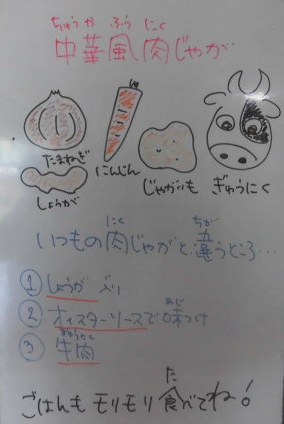 ちゅうかふうにく
中華風肉じゃが
たまねぎ
にんじん
じゃがいも
ぎゅうにく
しょうが
にく
ちが
いつもの肉じゃがと違うところ…
① しょうが入り
あじ
② オイスターソースで味つけ
ぎゅうにく
③ 牛肉
た
ごはんも モリモリ 食べてね！